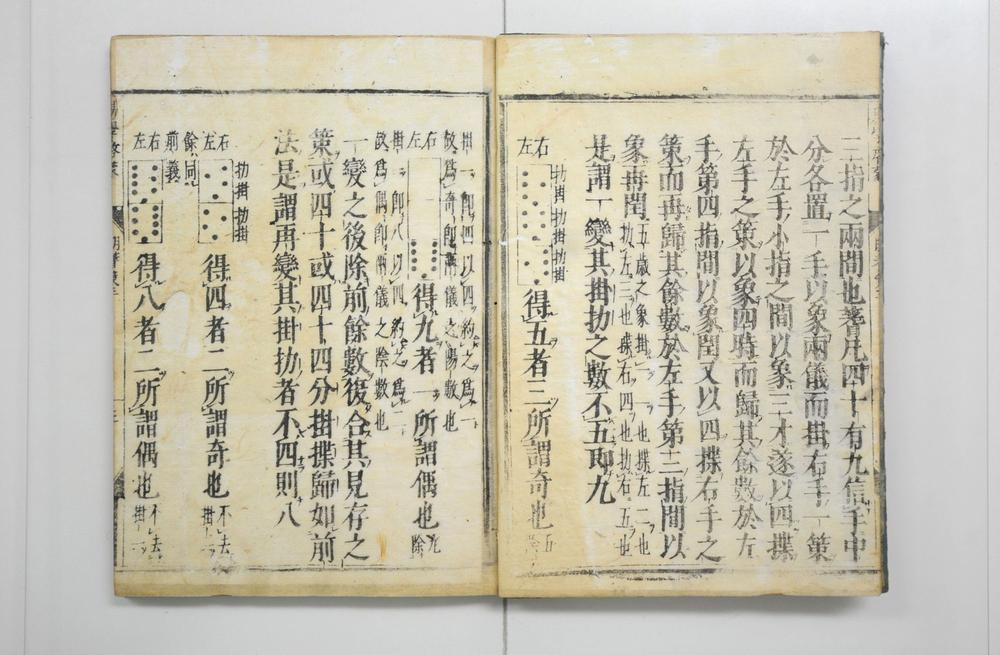 三指之兩間也蓍凡四十有九信手中
分各置一手以象兩儀而掛右手一策
於左手小指之間以象三才遂以四揲
左手之策以象四時而歸其餘數於左
手第四指間以象閏又以四揲右手之
策而再歸其餘數於左手第三指間以
象再閏五歲之象掛一一也揲左二也
扐左三也揲右四也扐右五也
是謂一變其掛扐之數不五即九
右
左
扐掛扐掛扐掛
得五者三所謂奇也五
除
掛一即四以四約之爲一
故爲奇即兩儀之陽數也
右
左
得九者一所謂偶也九除
掛一即八以四約之爲二
故爲偶即兩儀之陰數也
一變之後除前餘數復合其見存之
策或四十或四十四分掛揲歸如前
法是謂再變其掛扐者不四則八
右
左
扐掛扐掛
得四者二所謂奇也不去
掛一
餘同
前義
右
左
得八者二所謂偶也不去
掛一